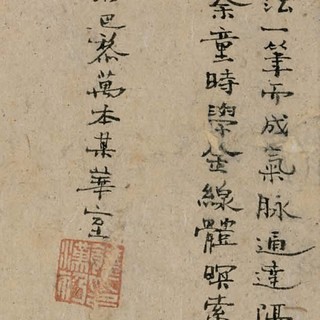 法一筆而成氣脉通達隔
余童時學金線體暝索
巴慈萬本某華室